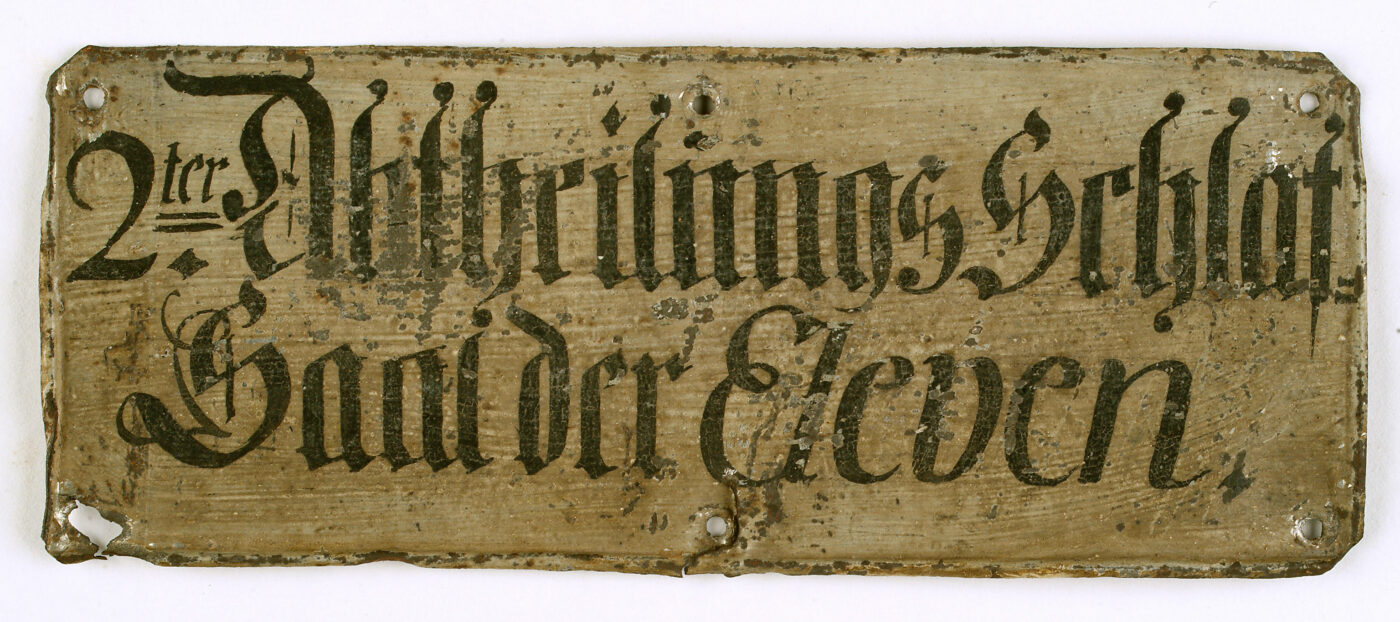 2.ter Abtheilungs Schlaf-
Saal der Eleven.